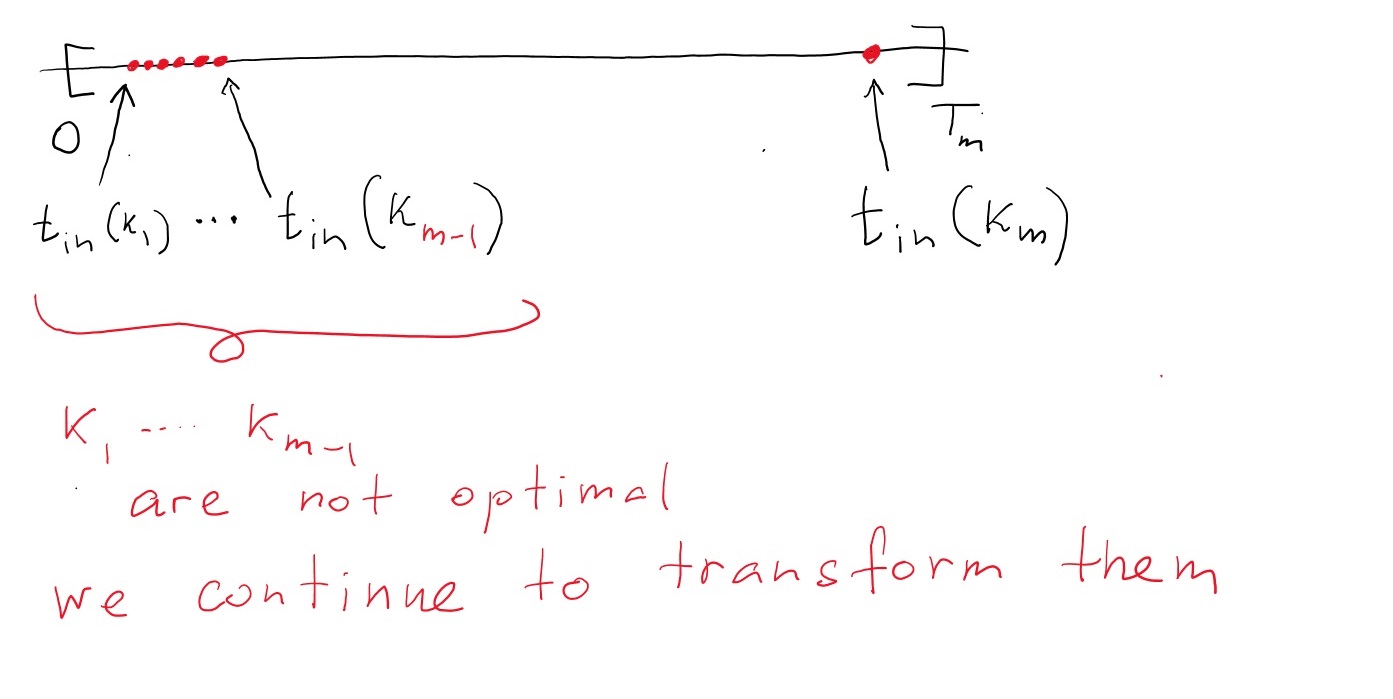 0 T_m
t_in(K_1) ... t_in(K_m-1) t_in(K_m)
K_1 .... K_m-1
are not optimal
we continue to transform them